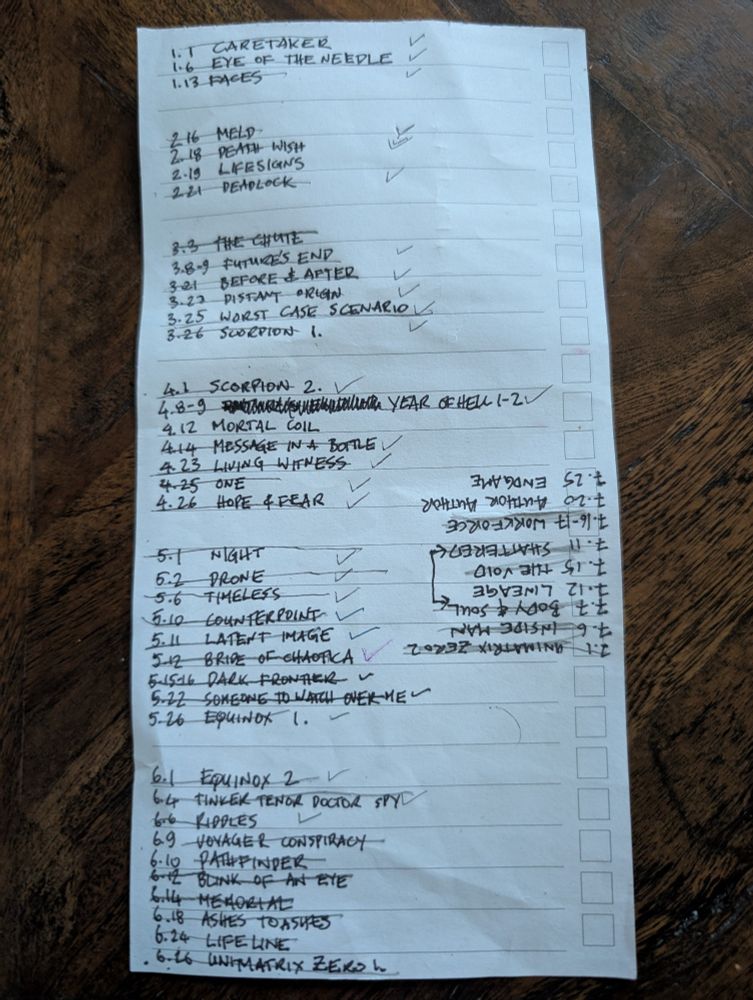 1.1 CARETAKER ✓
1.6 EYE OF THE NEEDLE ✓
1.13 FACES ✓
2.16 MELD ✓
2.18 DEATH WISH ✓
2.19 LIFESIGNS
2.21 DEADLOCK ✓
3.3 THE CHUTE
3.8-9 FUTURE'S END ✓
3.21 BEFORE & AFTER ✓
3.23 DISTANT ORIGIN ✓
3.25 WORST CASE SCENARIO ✓
3.26 SCORPION 1. ✓
4.1 SCORPION 2. ✓
4.8-9 YEAR OF HELL 1-2 ✓
4.12 MORTAL COIL
4.14 MESSAGE IN A BOTTLE ✓
4.23 LIVING WITNESS ✓
4.25 ONE ✓
4.26 HOPE & FEAR ✓
5.1 NIGHT ✓
5.2 DRONE ✓
5.6 TIMELESS ✓
5.10 COUNTERPOINT ✓
5.11 LATENT IMAGE ✓
5.12 BRIDE OF CHAOTICA ✓
5.15-16 DARK FRONTIER ✓
5.22 SOMEONE TO WATCH OVER ME ✓
5.26 EQUINOX 1. ✓
6.1 EQUINOX 2 ✓
6.4 TINKER TENOR DOCTOR SPY ✓
6.6 RIDDLES ✓
6.9 VOYAGER CONSPIRACY
6.10 PATHFINDER
6.12 BLINK OF AN EYE
6.14 MEMORIAL
6.18 ASHES TO ASHES
6.24 LIFE LINE
6.26 UNIMATRIX ZERO 1.
7.1 UNIMATRIX ZERO 2
7.6 INSIDE MAN
7.7 BODY & SOUL
7.12 LINEAGE
7.15 THE VOID
7.11 SHATTERED
7.16-17 WORKFORCE
7.20 AUTHOR AUTHOR
7.25 ENDGAME